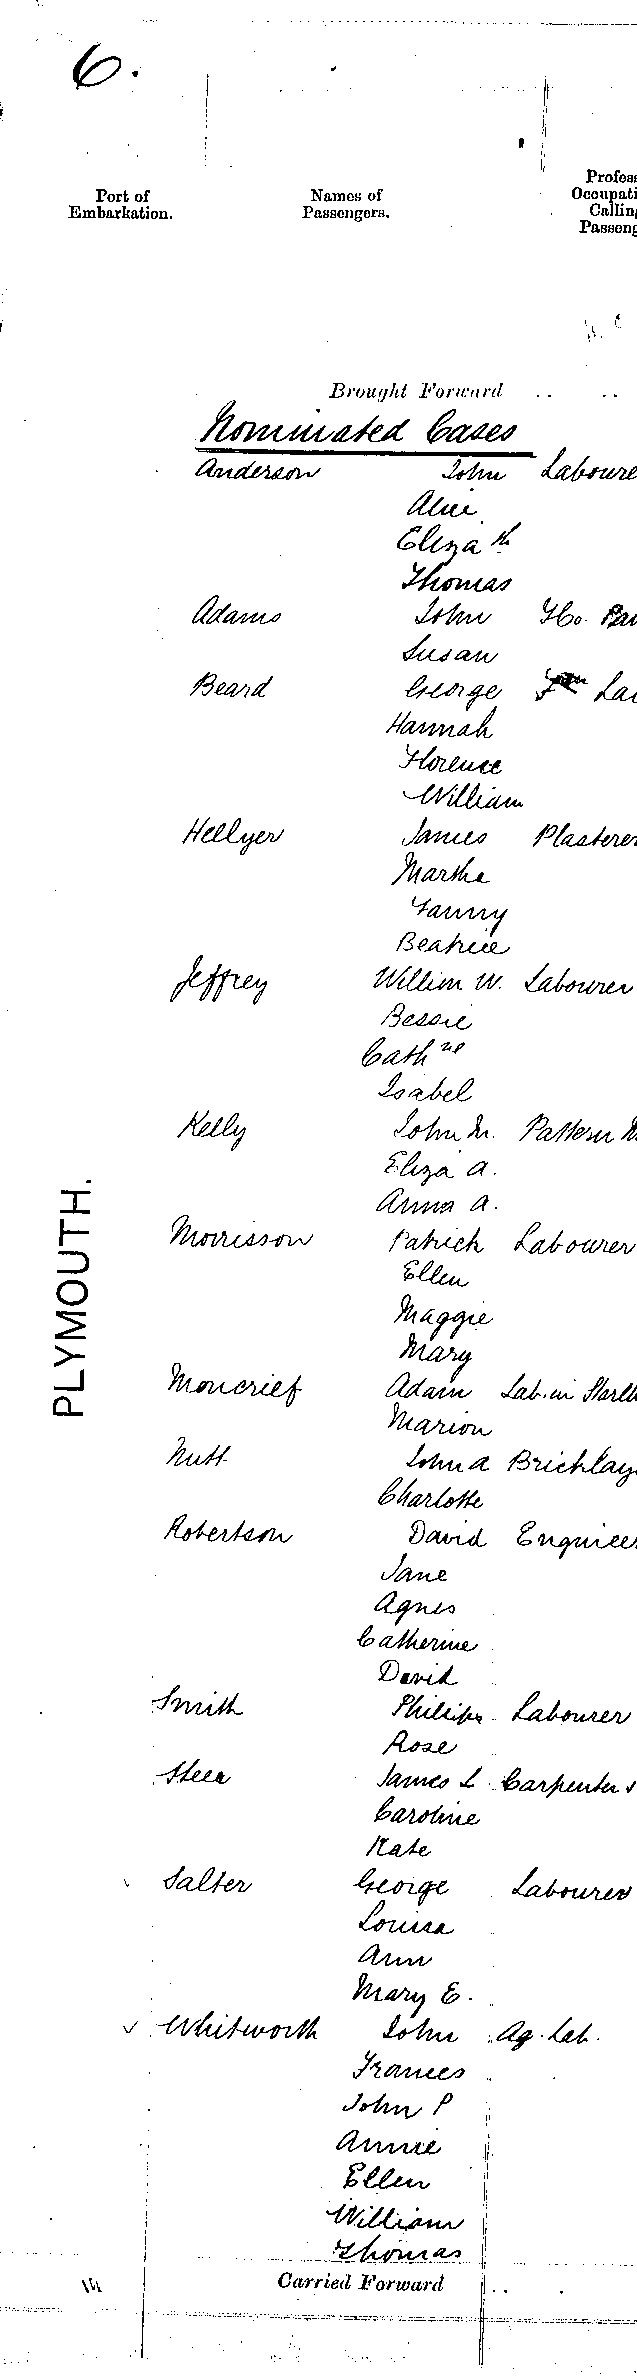 6.
Port of
Embarkation.
Names of
Passengers.
Profess
Occupati
Calling
Passeng
Brought Forward .. ..
Nominated Cases
Anderson John Laboure
Alice
Eliza th
Thomas
Adams John Ho. Pai
Susan
Beard George Lab
Hannah
Florence
William
Hellyer James Plasterer
Martha
Fanny
Beatrice
Jeffrey William W. Labourer
Bessie
Cath ne
Isabel
Kelly John M. Pattern M
Eliza A.
Anna A.
PLYMOUTH.
Morrisson Patrick Labourer
Ellen
Maggie
Mary
Moncrief Adam Lab. in
Marion
Nutt John A Bricklay
Charlotte
Robertson David Engineer
Jane
Agnes
Catherine
David
Smith Labourer
Rose
James L Carpenter
Caroline
Kate
Salter George Labourer
Louisa
Ann
Mary E.
✓ Whitworth John Ag. Lab.
Frances
John P
Annie
Ellen
William
Thomas
Carried Forward ..